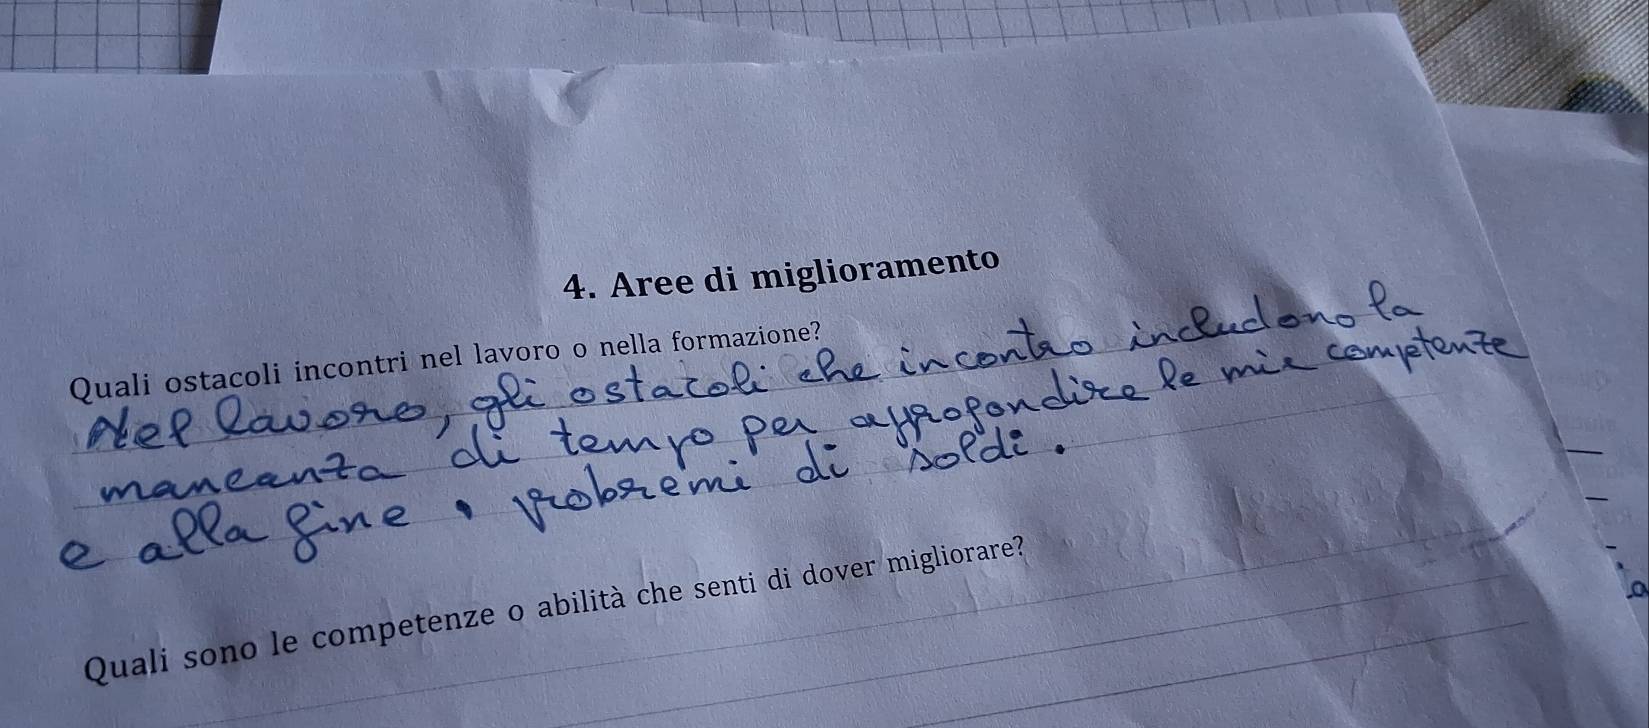 4. Aree di miglioramento
Quali ostacoli incontri nel lavoro o nella formazione?
Nel lavoro, gli ostacoli che incontro includono la
mancanza di tempo per approfondire le mie competenze
e alla fine, probremi di soldi.
Quali sono le competenze o abilità che senti di dover migliorare?